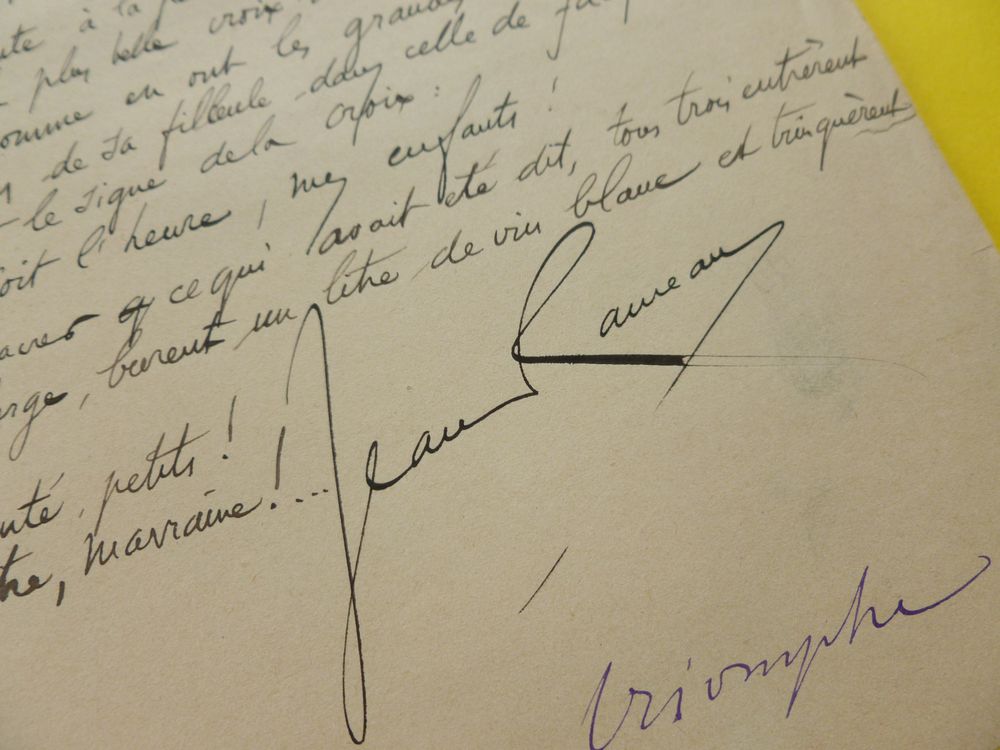 à la
plus belle croix
comme en ont les grandes
de sa filleule dans celle de
le signe de la croix :
soit l'heure, mes enfants !
ce qui avait été dit, tous trois entrèrent
burent un litre de vin blanc et trinquèrent
petits !
marraine !...
Jean Rameau
triomphe